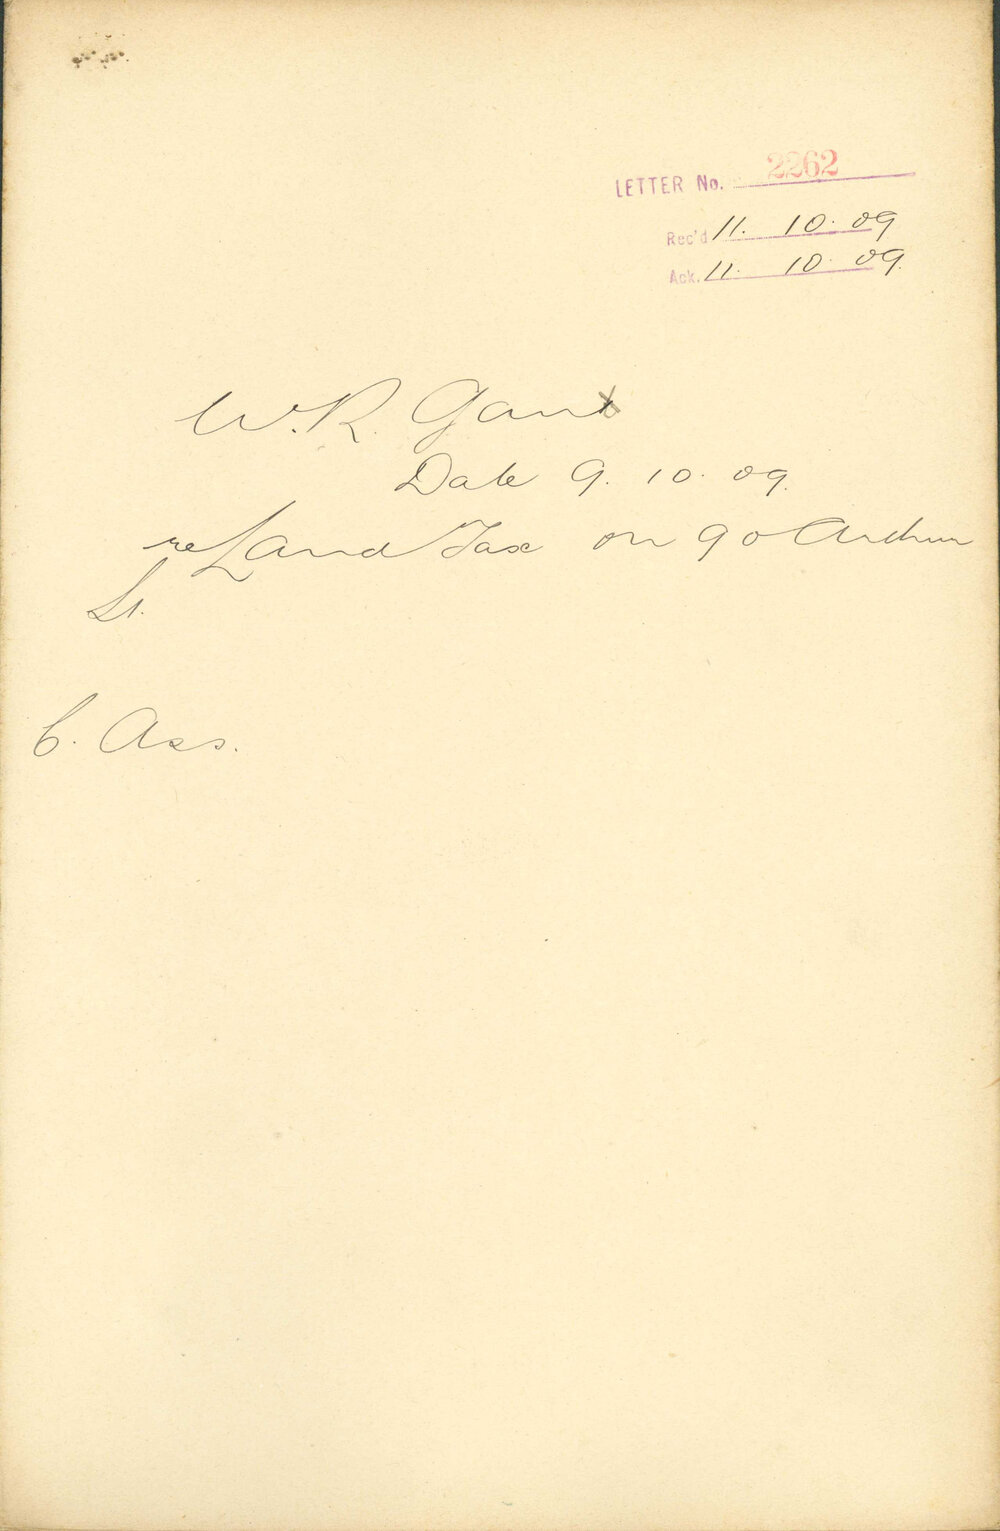 LETTER No. 2262
Rec'd 11. 10. 09
Ack. 11. 10. 09.
W. R. Gant
Date 9. 10. 09.
re Land Tax on 90 Arthur
St.
C. Ass.